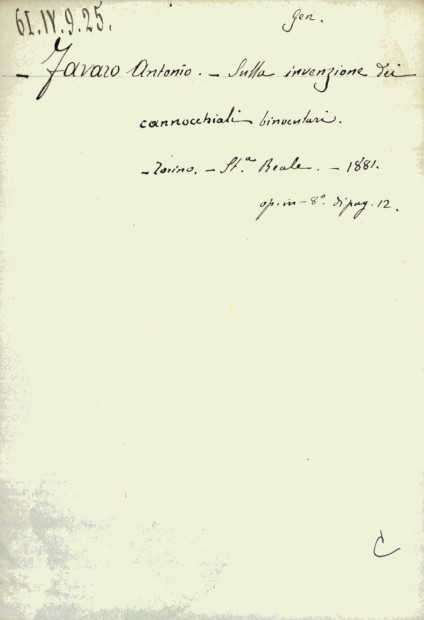 61.IV.9.25.
Gen.
- Favaro Antonio. - Sulla invenzione dei
cannocchiali binoculari.
- Torino. - St.ª Reale. - 1881.
op. in - 8°. di pag. 12.
C